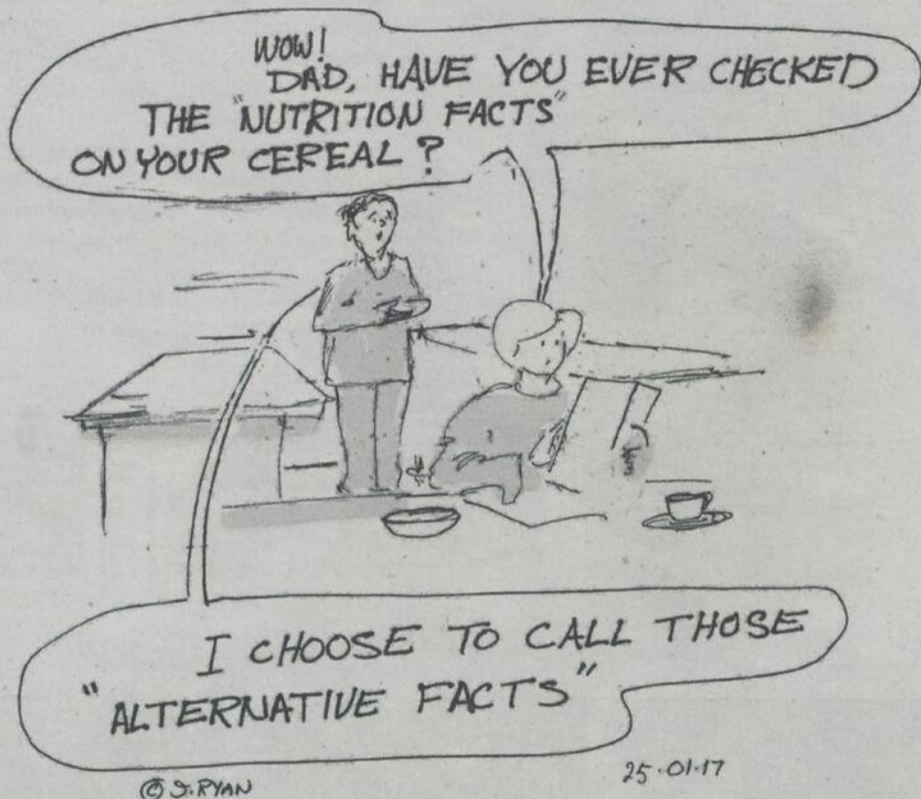 WOW!
DAD, HAVE YOU EVER CHECKED
THE "NUTRITION FACTS"
ON YOUR CEREAL?
I CHOOSE TO CALL THOSE
"ALTERNATIVE FACTS"
© J. RYAN
25.01.17